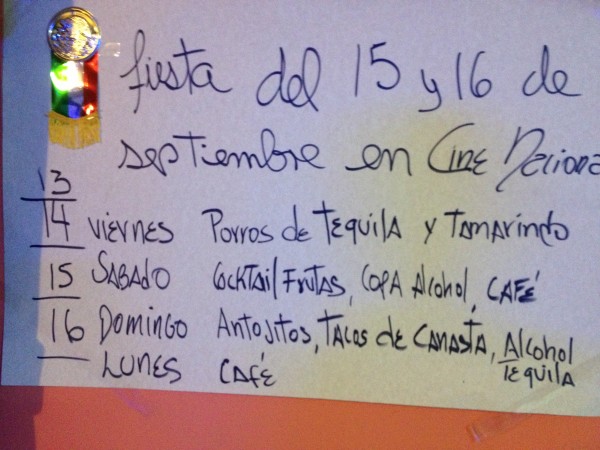 fiesta del 15 y 16 de
septiembre en Cine Naciona
13
14 viernes Porros de Tequila y Tamarindo
15 Sabado Cocktail Frutas, Copa Alcohol, Café
16 Domingo Antojitos, Tacos de Canasta, Alcohol
Tequila
Lunes Café